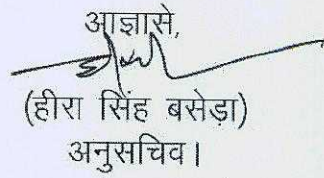 आज्ञासे,
(हीरा सिंह बसेड़ा)
अनुसचिव।